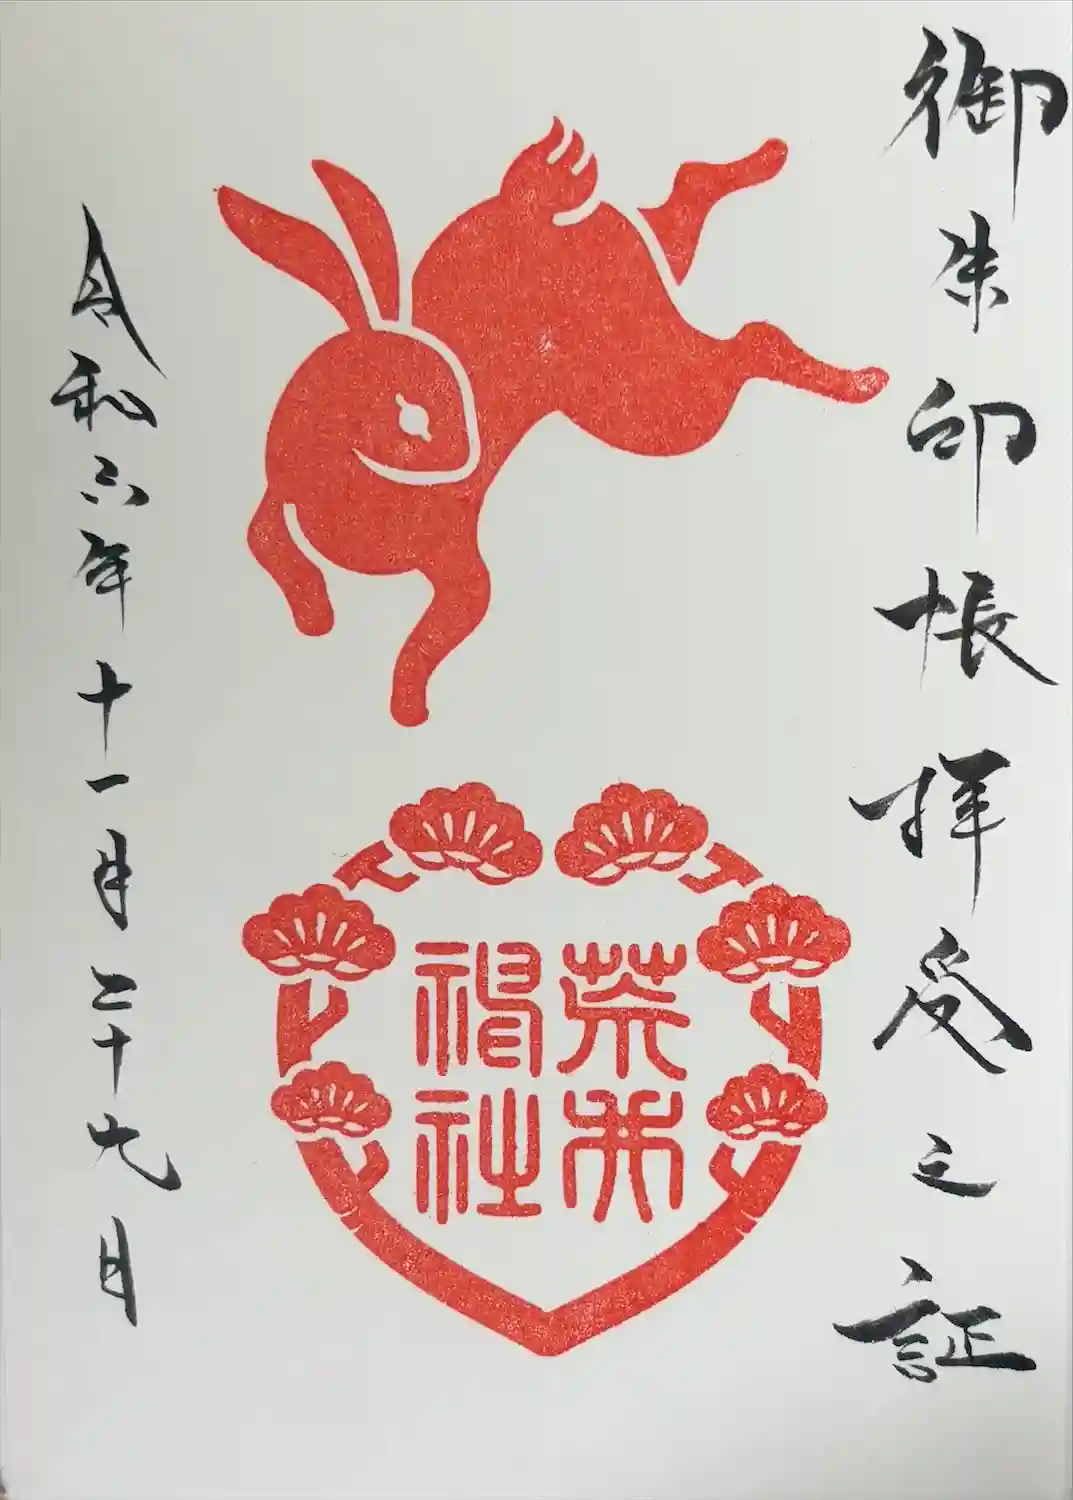 御朱印帳拝受之証
荒井
神社
令和六年十一月二十九日